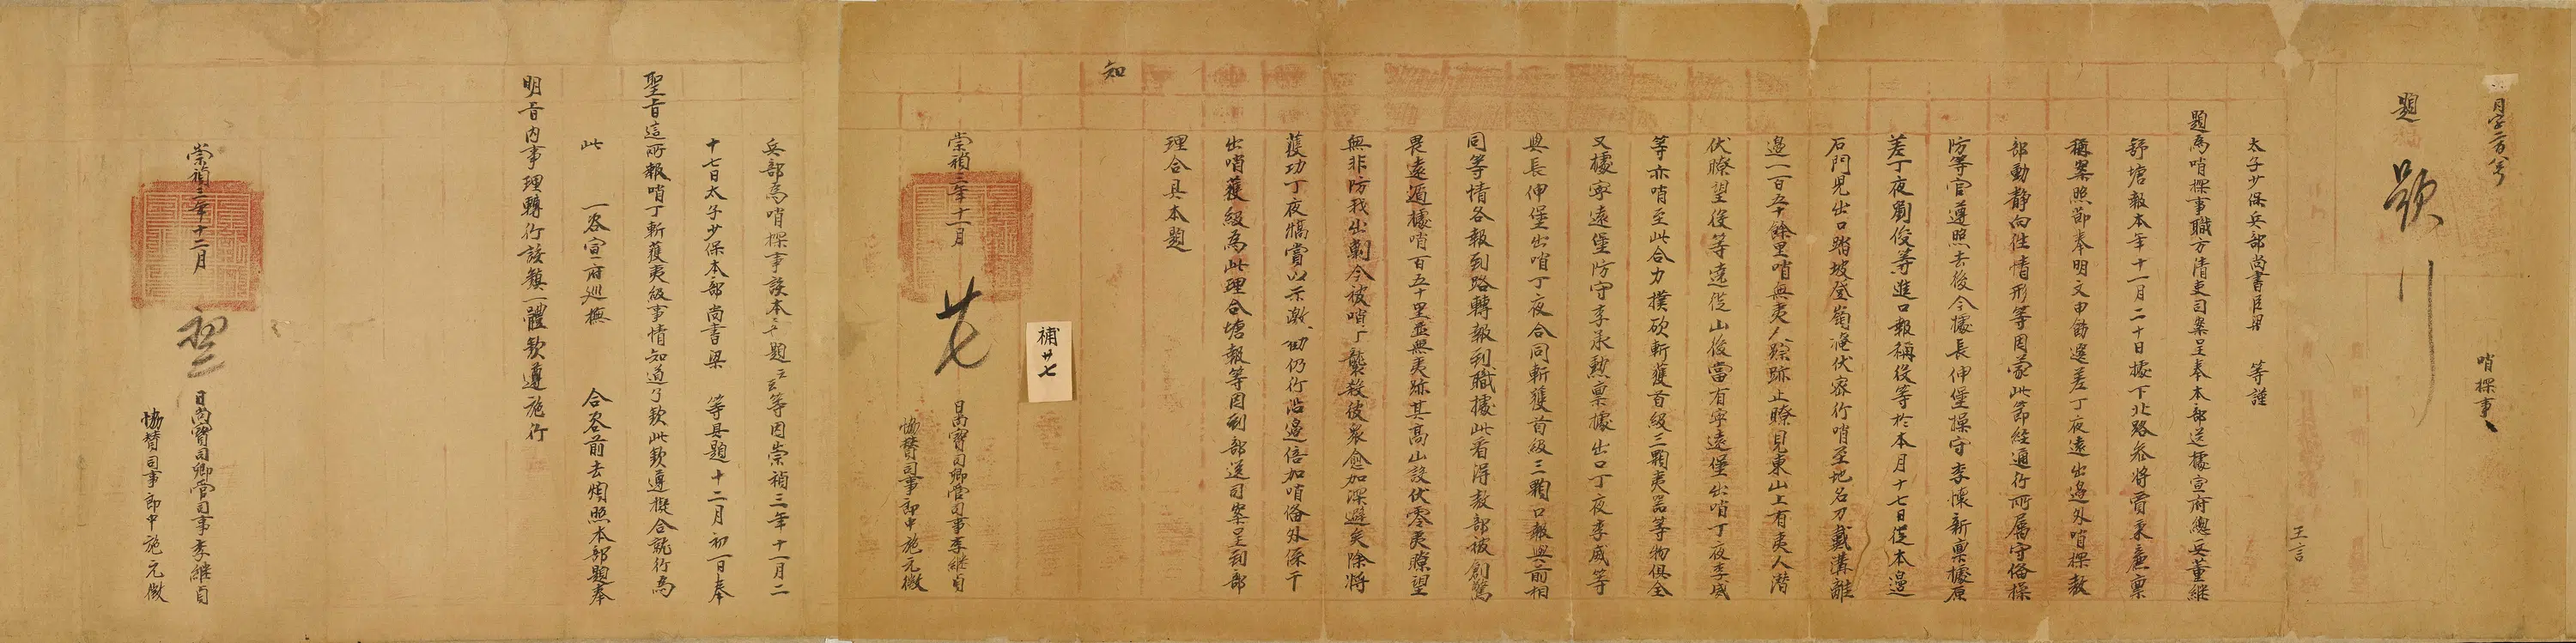 月字二百八号
哨探事
題 題
行
太子少保兵部尚書臣梁 等謹
王言
題為哨探事職方清吏司案呈奉本部送據宣府總兵董繼
舒塘報本年十一月二十日據下北路叅將賈秉廉稟
稱案照節奉明文申飭選差丁夜遠出邊外哨探敖
部動静向徃情形等因蒙此節經通行所属守俻操
防等官遵照去後今據長伸堡操守李懷新稟據原
差丁夜劉俊等進口報稱俊等於本月十七日從本邊
石門兒出口踏坡登崗掩伏宻行哨至地名刀戴溝離
邊一百五十餘里哨無夷人踪跡止瞭見東山上有夷人潜
伏瞭望俊等遠從山後當有寧遠堡出哨丁夜李威
等亦哨至此合力撲砍斬獲首級三顆夷噐等物俱全
又據寧遠堡防守李承勲稟據出口丁夜李威等
與長伸堡出哨丁夜合同斬獲首級三顆口報與前相
同等情各報到路轉報到職據此看得敖部被創驚
畏遠遁據哨百五十里並無夷跡其髙山設伏零夷瞭望
無非防我出剿今被哨丁襲殺彼衆愈加深避矣除將
獲功丁夜犒賞以示激勸仍行沿邊倍加哨俻外係干
出哨獲級為此理合塘報等因到部送司案呈到部
理合具本題
知
補廿七
崇禎三年十一月 廿七 日尚寳司卿管司事李繼貞
協賛司事郎中施元徵
兵部為哨探事該本部題云云等因崇禎三年十一月二
十七日太子少保本部尚書梁 等具題十二月初一日奉
聖旨這所報哨丁斬獲夷級事情知道了欽此欽遵擬合就行為
此 一咨宣府巡撫 合咨前去煩照本部題奉
明旨内事理轉行該鎮一體欽遵施行
崇禎三年十二月 日尚寳司卿管司事李繼貞
協賛司事郎中施元徵